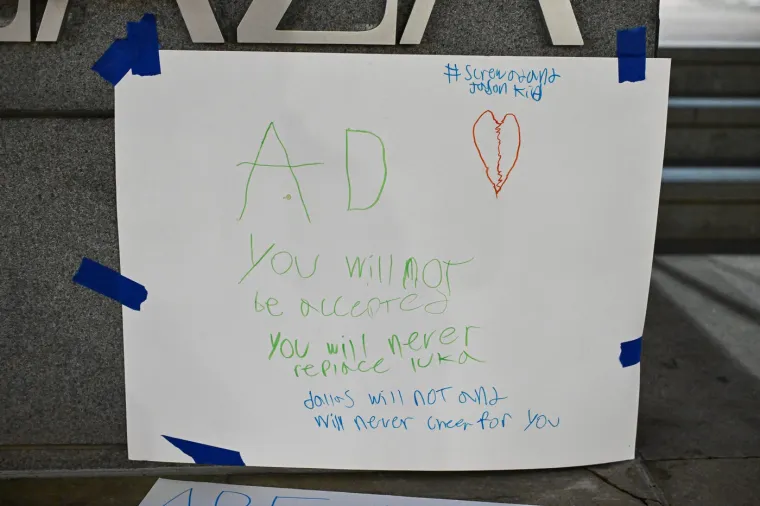 AZA
#screw oz and
Jason Kid
AD
You will NOT
be accepted
You will never
replace luka
dallas will NOT and
will never cheer for You